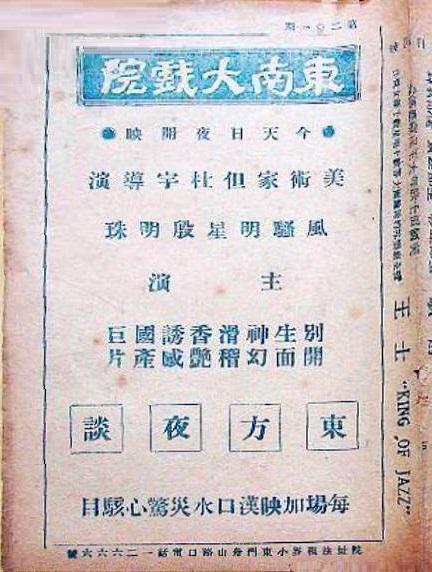 第二〇一期
東南大戲院
今天日夜開映
美術家但杜宇導演
風騷明星殷明珠
主演
別開生面神幻滑稽香艷誘感國產巨片
東方夜談
每場加映漢口水災驚心駭目
院址法租界小東門舟山路口電話一二六六六號
王士 "KING OF JAZZ"